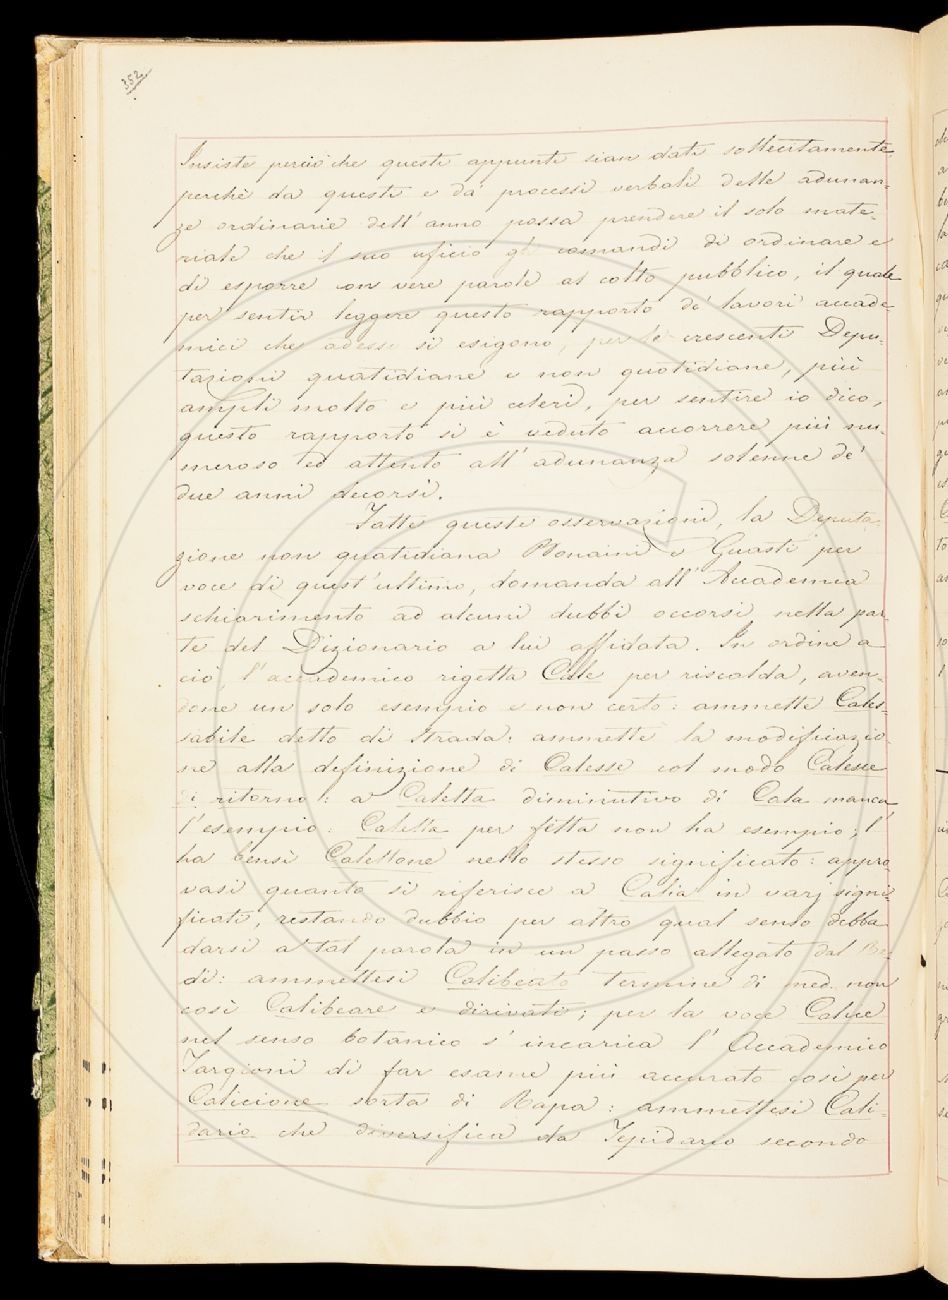 352
Insiste perciò che questi appunti sian dati sollecitamente
perchè da questi e da' processi verbali delle adunan-
ze ordinarie dell'anno possa prendere il solo mate-
riale che il suo uficio gli comandi di ordinare e
di esporre con vere parole al colto pubblico, il quale
per sentir leggere questo rapporto de' lavori accade-
mici che adesso si esigono, per le crescenti Depu-
tazioni quotidiane e non quotidiane, più
ampli molto e più celeri, per sentire io dico,
questo rapporto si è veduto accorrere più nu-
meroso ed attento all'adunanza solenne de'
due anni decorsi.
Fatte queste osservazioni, la Deputa-
zione non quotidiana Bonaini e Guasti per
voce di quest'ultimo, domanda all'Accademia
schiarimento ad alcuni dubbi occorsi nella par-
te del Dizionario a lui affidata. In ordine a
ciò, l'accademico rigetta Cale per riscalda, aven-
done un solo esempio e non certo: ammette Cales-
sabile detto di Strada: ammette la modificazio-
ne alla definizione di Calesse col modo Calesse
di ritorno: a Caletta diminutivo di Cala manca
l'esempio: Caletta per fetta non ha esempio; l'
ha bensì Calettone nello stesso significato: appro-
vasi quanto si riferisce a Calia in varj signi-
ficati, restando dubbio per altro qual senso debba
darsi a tal parola in un passo allegato dal Re-
di: ammettesi Calibeato termine di med. non
così Calibeare e dirivati; per la voce Calice
nel senso botanico s'incarica l'Accademico
Targioni di far esame più accurato così per
Calicione sorta di Rapa: ammettesi Cali-
dario che diversifica da Tepidario secondo